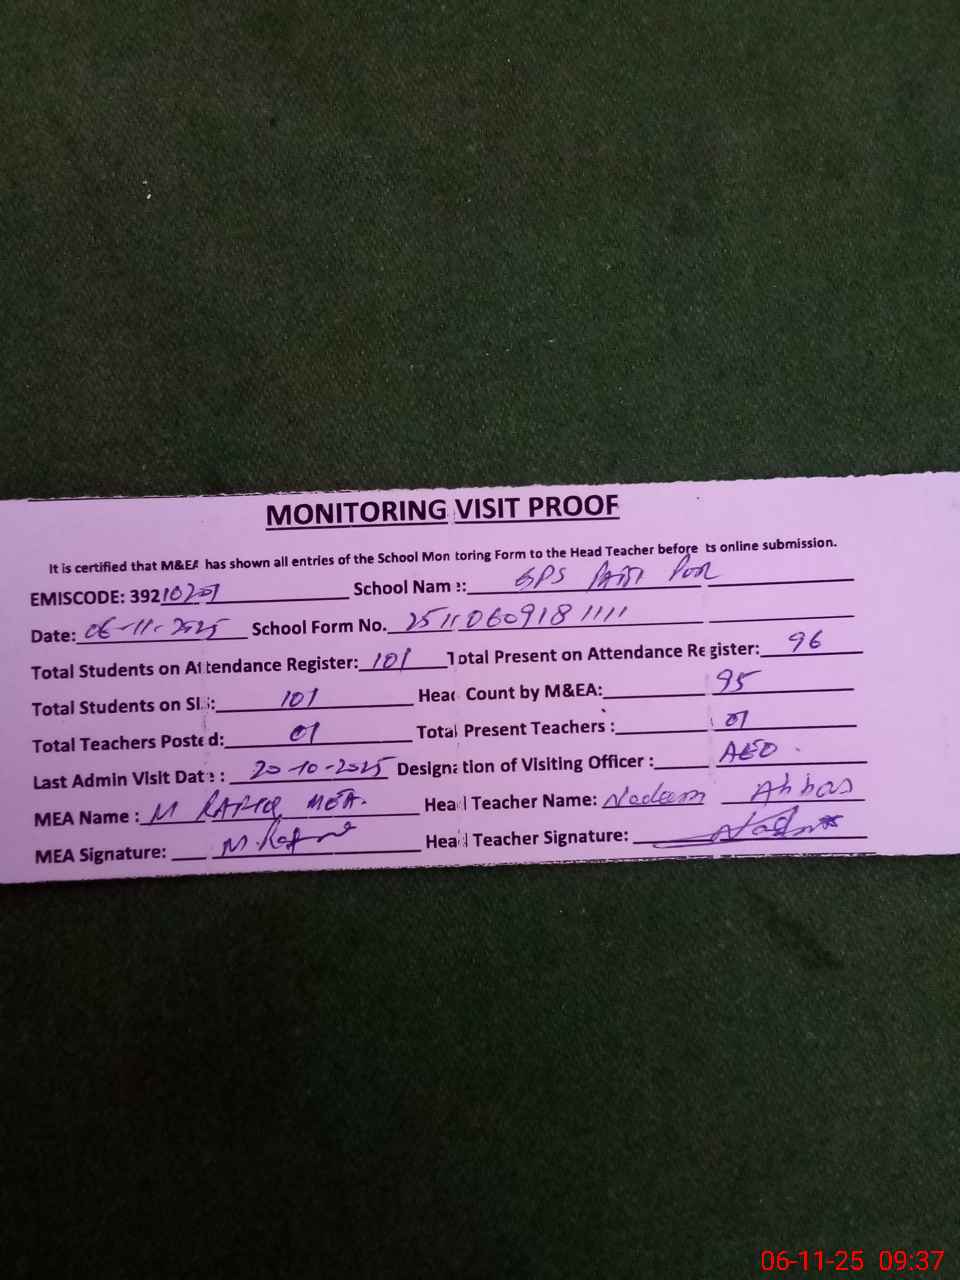 MONITORING VISIT PROOF
It is certified that M&EA has shown all entries of the School Mon toring Form to the Head Teacher before ts online submission.
EMISCODE: 39210201 School Nam e: GPS
Date: 06-11-2025 School Form No. 2511060918 1111
Total Students on Attendance Register: 101 Total Present on Attendance Register: 96
Total Students on SIS: 101 Head Count by M&EA: 95
Total Teachers Posted: 01 Total Present Teachers : 01
Last Admin Visit Date : 20-10-2025 Designation of Visiting Officer : AEO
MEA Name : M RAFIQ MEA. Head Teacher Name: Nadeem Abbas
MEA Signature: M. Head Teacher Signature:
06-11-25 09:37